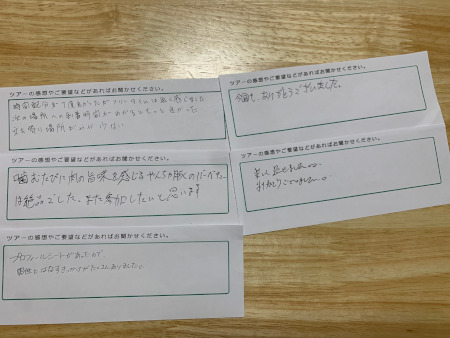 ツアーの感想やご要望などがあればお聞かせください。
時間配分が丁度良かったがフリータイムは長く感じました
次の場所への到着時間がわかるともっと良かった
ツアーの感想やご要望などがあればお聞かせください。
噛むたびに肉の旨味を感じる
は絶品でした。また参加したいと思います
ツアーの感想やご要望などがあればお聞かせください。
プロフィールシートがあったので、
はなすきっかけがたくさんありました。
ツアーの感想やご要望などがあればお聞かせください。
今回も、ありがとうございました。
ツアーの感想やご要望などがあればお聞かせください。
ありがとうございました。